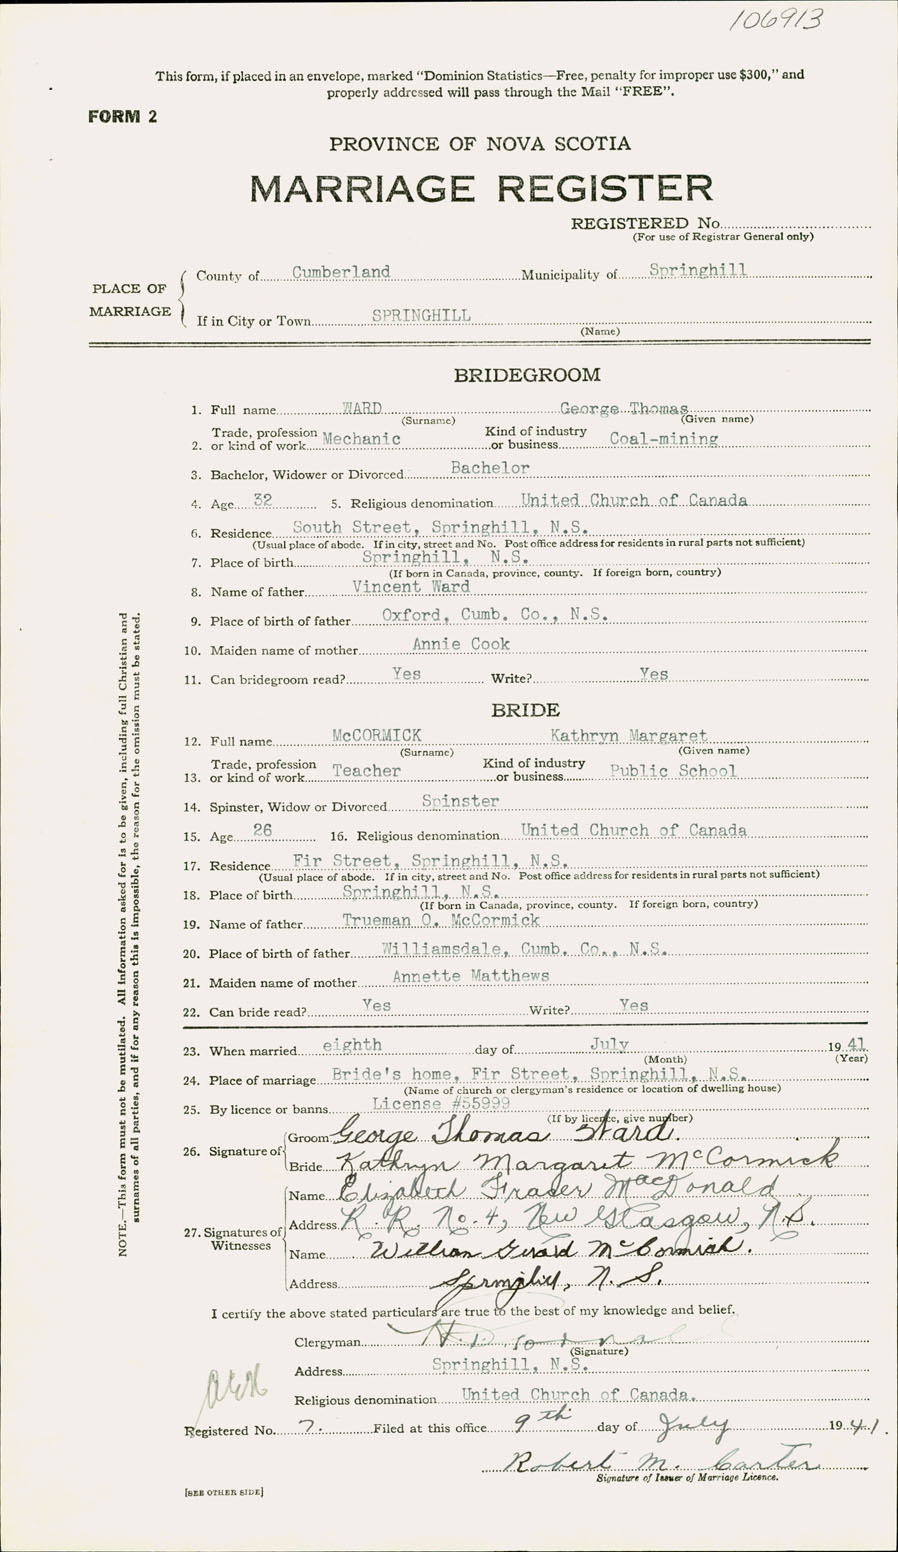 106913
This form, if placed in an envelope, marked "Dominion Statistics—Free, penalty for improper use $300," and
properly addressed will pass through the Mail "FREE".
FORM 2
PROVINCE OF NOVA SCOTIA
MARRIAGE REGISTER
REGISTERED No.
(For use of Registrar General only)
PLACE OF MARRIAGE
County of Cumberland Municipality of Springhill
If in City or Town SPRINGHILL
(Name)
BRIDEGROOM
1. Full name WARD George Thomas
(Surname) (Given name)
2. Trade, profession or kind of work Mechanic Kind of industry or business Coal-mining
3. Bachelor, Widower or Divorced Bachelor
4. Age 32 5. Religious denomination United Church of Canada
6. Residence South Street, Springhill, N.S.
(Usual place of abode. If in city, street and No. Post office address for residents in rural parts not sufficient)
7. Place of birth Springhill, N.S.
(If born in Canada, province, county. If foreign born, country)
8. Name of father Vincent Ward
9. Place of birth of father Oxford, Cumb. Co., N.S.
10. Maiden name of mother Annie Cook
11. Can bridegroom read? Yes Write? Yes
BRIDE
12. Full name McCORMICK Kathryn Margaret
(Surname) (Given name)
13. Trade, profession or kind of work Teacher Kind of industry or business Public School
14. Spinster, Widow or Divorced Spinster
15. Age 26 16. Religious denomination United Church of Canada
17. Residence Fir Street, Springhill, N.S.
(Usual place of abode. If in city, street and No. Post office address for residents in rural parts not sufficient)
18. Place of birth Springhill, N.S.
(If born in Canada, province, county. If foreign born, country)
19. Name of father Trueman O. McCormick
20. Place of birth of father Williamsdale, Cumb. Co., N.S.
21. Maiden name of mother Annette Matthews
22. Can bride read? Yes Write? Yes
23. When married eighth day of July 1941
(Month) (Year)
24. Place of marriage Bride's home, Fir Street, Springhill, N.S.
(Name of church or clergyman's residence or location of dwelling house)
25. By licence or banns License #55999
(If by licence, give number)
26. Signature of Groom George Thomas Ward.
Bride Kathryn Margaret McCormick
27. Signatures of Witnesses
Name Elizabeth Fraser MacDonald
Address R. R. No. 4, New Glasgow, N.S.
Name William Gerard McCormick.
Address Springhill, N. S.
I certify the above stated particulars are true to the best of my knowledge and belief.
Clergyman
(Signature)
Address Springhill, N.S.
Religious denomination United Church of Canada.
Registered No. 7. Filed at this office 9th day of July 1941.
Robert M. Carter
Signature of Issuer of Marriage Licence.
[SEE OTHER SIDE]
NOTE.—This form must not be mutilated. All information asked for is to be given, including full Christian and
surnames of all parties, and if for any reason this is impossible, the reason for the omission must be stated.